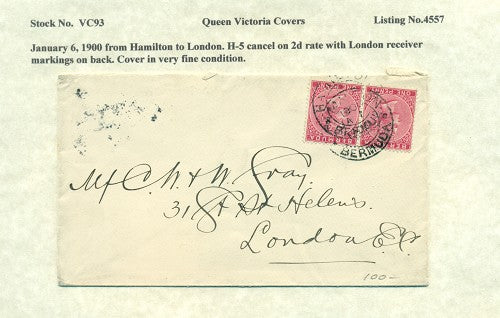 Stock No. VC93 Queen Victoria Covers Listing No.4557
January 6, 1900 from Hamilton to London. H-5 cancel on 2d rate with London receiver
markings on back. Cover in very fine condition.
ONE PENNY ONE PENNY
BERMUDA
Gray
31 St Helens
London E.C.
100-